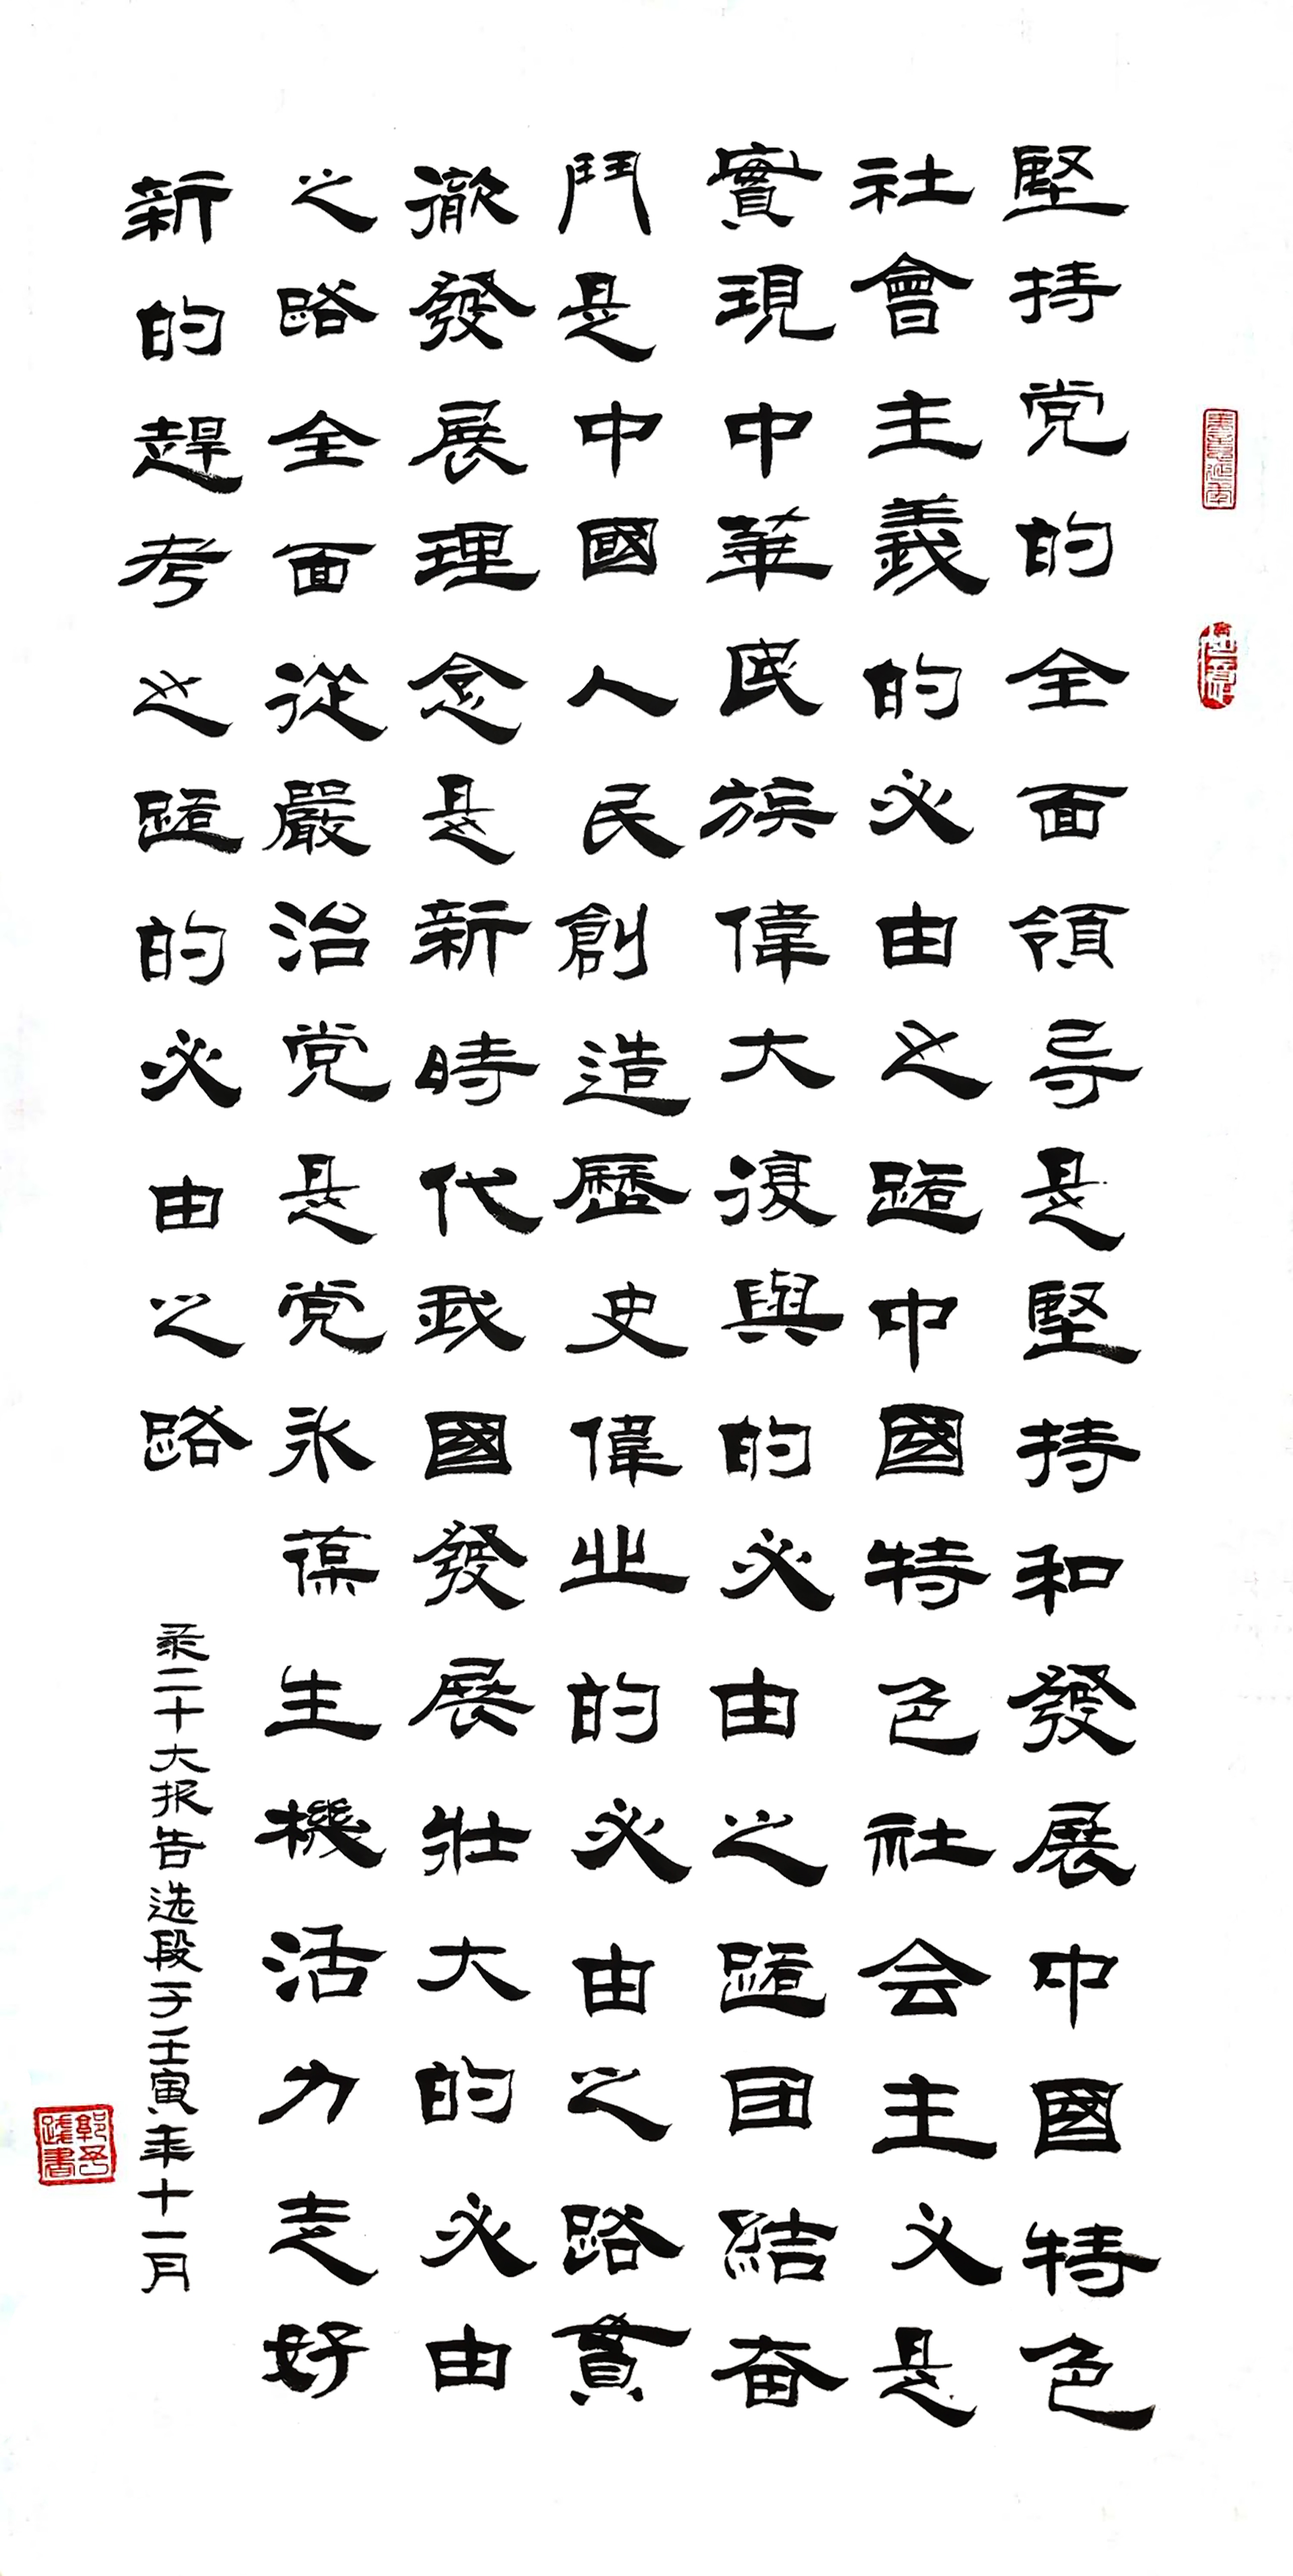 堅持党的全面領导是堅持和發展中國特色
社會主義的必由之路中國特色社会主义是
實現中華民族偉大復與的必由之路团結奋
鬥是中國人民創造歷史偉业的必由之路貫
徹發展理念是新時代我國發展壯大的必由
之路全面從嚴治党是党永葆生機活力走好
新的趕考之路的必由之路
录二十大报告选段于壬寅年十一月